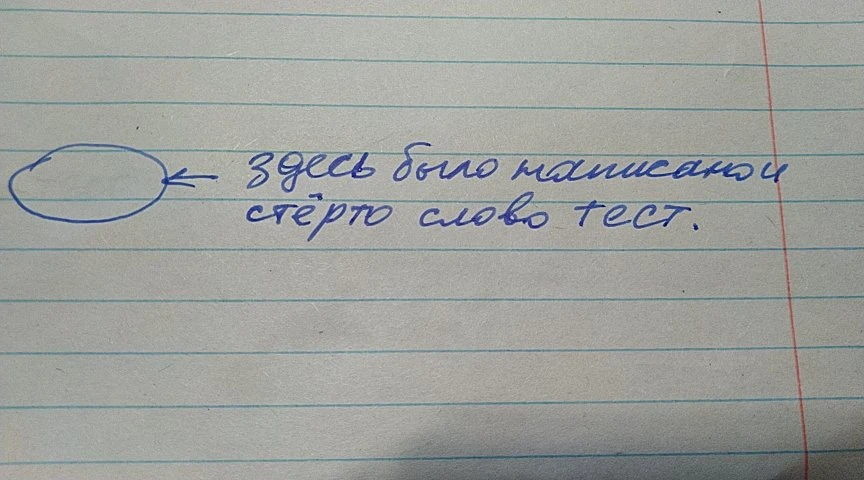 здесь было написано и
стёрто слово тест.